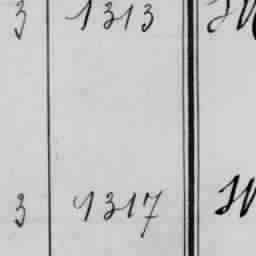 3 1313
3 1317